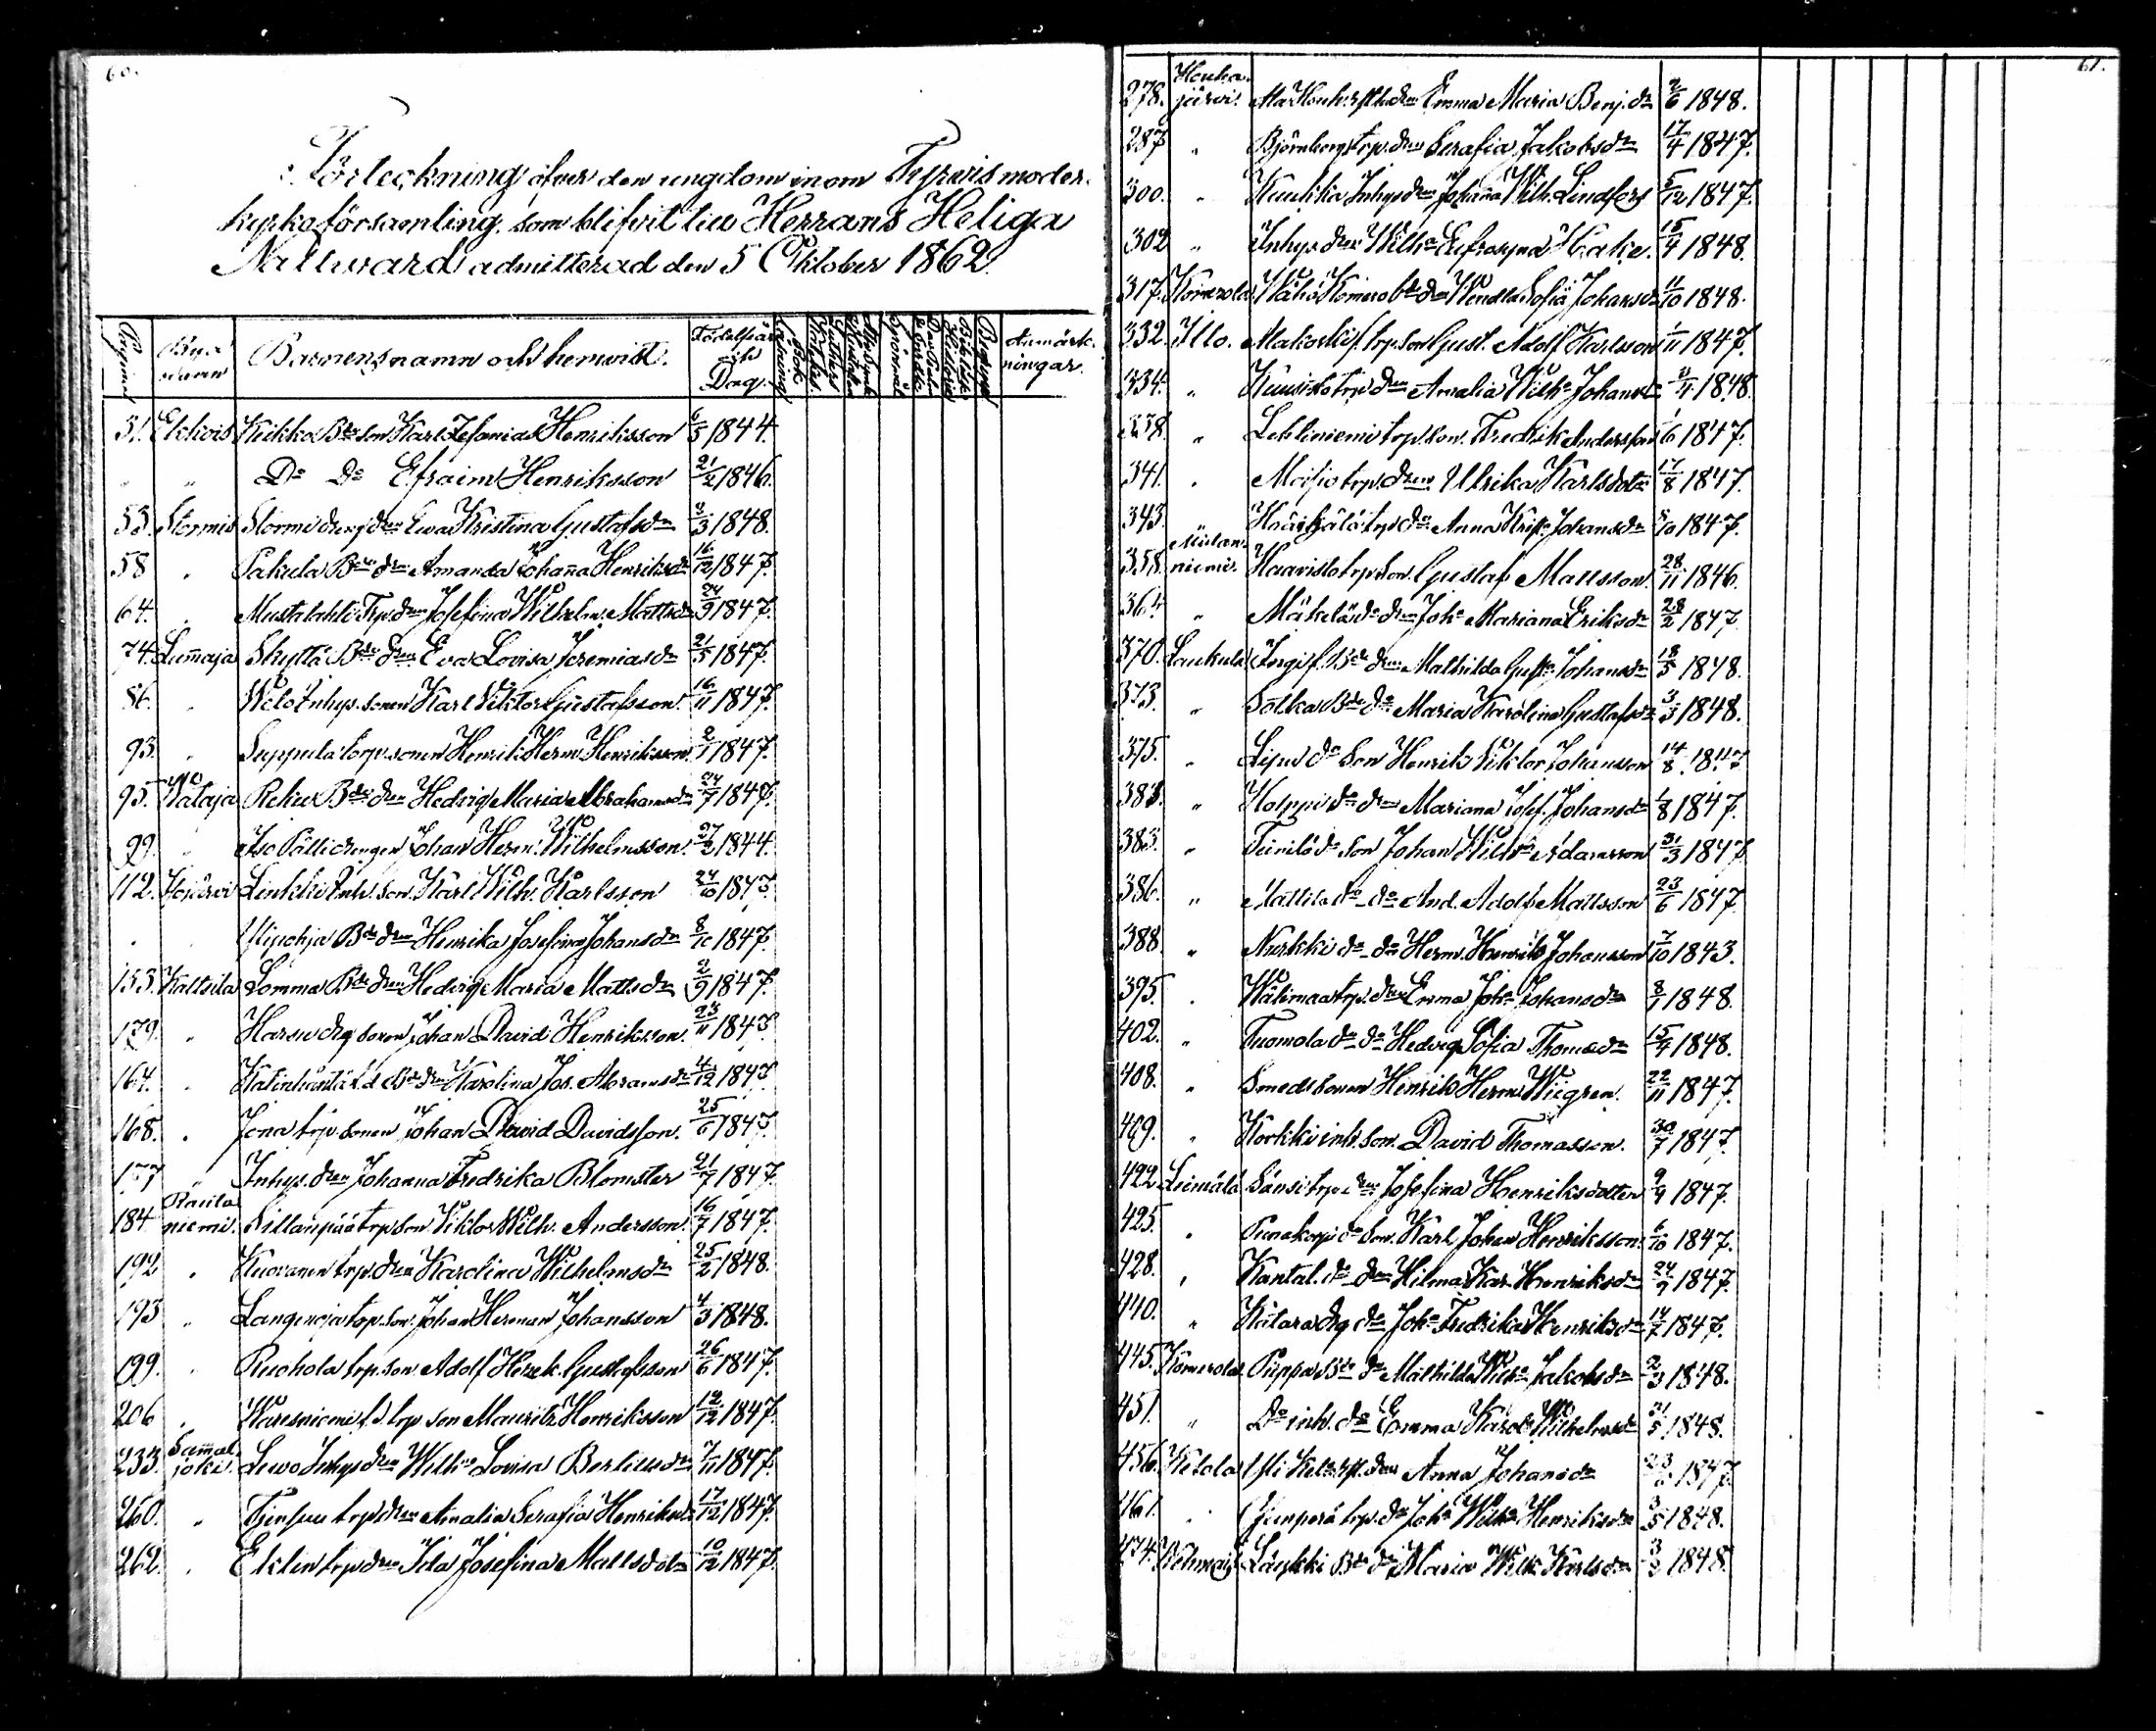 60.
Förteckning öfver den ungdom inom Tyrvis moder-
kyrkoförsamling, som blifvit till Herrans Heliga
Nattward admitterad den 5 Oktober 1862.
Pagina Byanamn Barnens namn och hemvist. Födelseår och Dag. Anmärkningar.
51. Ekkois Kiikka Bde son Karl Zefanias Henriksson 6/3 1844.
" " Do Do Efraim Henriksson 21/2 1846.
53. Stormis Stormi drengdren Ewa Kristina Gustafsdr 3/3 1848.
58 " Pakula Bde dren Amanda Johanna Henriksdr 16/12 1847.
64. " Mustalahti Trp. dren Josefina Wilhelm. Mattsdr 24/9 1847.
74. Lummaja Skyttä Bde dren Eva Lovisa Jeremiasdr 21/5 1847.
86. " Inhys. sonen Karl Viktor Gustafsson. 16/11 1847.
93. " Suppula torp. sonen Henrik Herm. Henriksson. 2/1 1847.
95. Wataja Reku Bde dren Hedvig Maria Abrahamsdr 24/7 1847.
99. " Iso Pälli drengen Johan Herm. Wilhelmsson. 27/2 1844.
112. Linkki Inh. son. Karl Wilh. Karlsson 24/10 1847.
" " Ylipohja Bde dren Henrika Josefina Johansdr 8/10 1847.
153. Kaltsila Somma Bde dren Hedvig Maria Mattsdr 2/9 1847.
179. " Harsu drg sonen Johan David Henriksson. 23/11 1847.
164. " Bde dren Karolina Jos. Abramsdr 4/12 1847.
168. " Jona trp. sonen Johan David Davidsson. 25/6 1847.
177 " Inhys. dren Johanna Fredrika Blomster 21/7 1847.
184 Rauta niemi. Sillanpää trp son Viktor Wilh. Andersson. 16/7 1847.
192 " Kuoranen trp. dren Karolina Wilhelmsdr 25/2 1848.
193 " Langinoja torp. son. Johan Herman Johansson 4/3 1848.
199. " Ruohola trp. son Adolf Henrk. Gustafsson 26/6 1847.
206 " Waresniemi f.d. trp son Mauritz Henriksson 12/12 1847.
233. Sammal joki. Lewo Inhys dren Wilhna Lovisa Berliusdr 7/11 1847.
260. " trp dren Amalia Serafia Henriksdr 17/12 1847.
262. " Eklin trp dren Ida Josefina Mattsdotr 10/12 1847.
61.
278. Houha- järvi. dren Emma Maria Benj. dr 2/6 1848.
287 " Björnberg trp. dren Serafia Jakobsdr 17/4 1847.
300. " Kuukka Inhys dren Johanna Wilh. Lindfors 5/12 1847.
302 " Inhys dren Wilhna Eufrosyna Hake. 15/4 1848.
317. Komerola Wähä Komero bde dren Wendla Sofia Johansdr 11/10 1848.
332. Illo. Makoski f. trp. son Gust. Adolf Karlsson 1/11 1847.
334. " Kuusisto trp dren Amalia Wilhna Johansdr 11/11 1848.
338. " Lehliniemi trp. son. Fredrik Andersson 1/6 1847.
341. " Maisio trp. dren Ulrika Karlsdotr 17/8 1847.
343. " trp. dren Anna Krist. Johansdr 8/10 1847.
358. niemi. Haavisto trp. son. Gustaf Mattsson. 28/11 1846.
364 " Mäkelä do dren Joha Mariana Eriksdr 28/2 1847.
370. Laukula Bde dren Mathilda Gust. Johansdr 18/5 1848.
373. " Sotka Bde do Maria Karolina Gustafsdr 3/3 1848.
375. " do Son Henrik Viktor Johansson 14/8 1847
383. " Holppi do dren Mariana Josef. Johansdr 1/8 1847.
383. " do Son Johan Wilhm Adamsson 31/3 1847
386. " Mattila do do And. Adolf Mattsson 23/6 1847.
388. " Nurkki do do Herm. Henrik Johansson 7/10 1843.
395. " Wälimaa trp. dren Emma Joha Johansdr 8/1 1848.
402. " Tuomola do do Hedvig Sofia Thomasdr 15/4 1848.
408. " Smedsonen Henrik Herm. Wiegren. 22/11 1847.
419. " Korkki inh. son. David Thomasson. 30/7 1847.
422 Liemälä Sänsi trp. dren Josefina Henriksdotter 9/9 1847.
425. " do Son. Karl Johan Henriksson. 6/10 1847.
428. " Kantal. do dren Hilma Kar. Henriksdr 24/9 1847.
440. " Kalara drg do Joha Fredrika Henriksdr 14/7 1847.
445. Komerola Bde do Mathilda Wilhna Jakobsdr 2/3 1848.
451. " Do inh. do Emma Karol. Wilhelmsdr 21/5 1848.
456. Ketola dren Anna Johansdr 1847.
461. " trp. do Joha Wilhna Henriksdr 3/5 1848.
474. Laukki Bde do Maria Wilh. Karlsdr 3/2 1848.